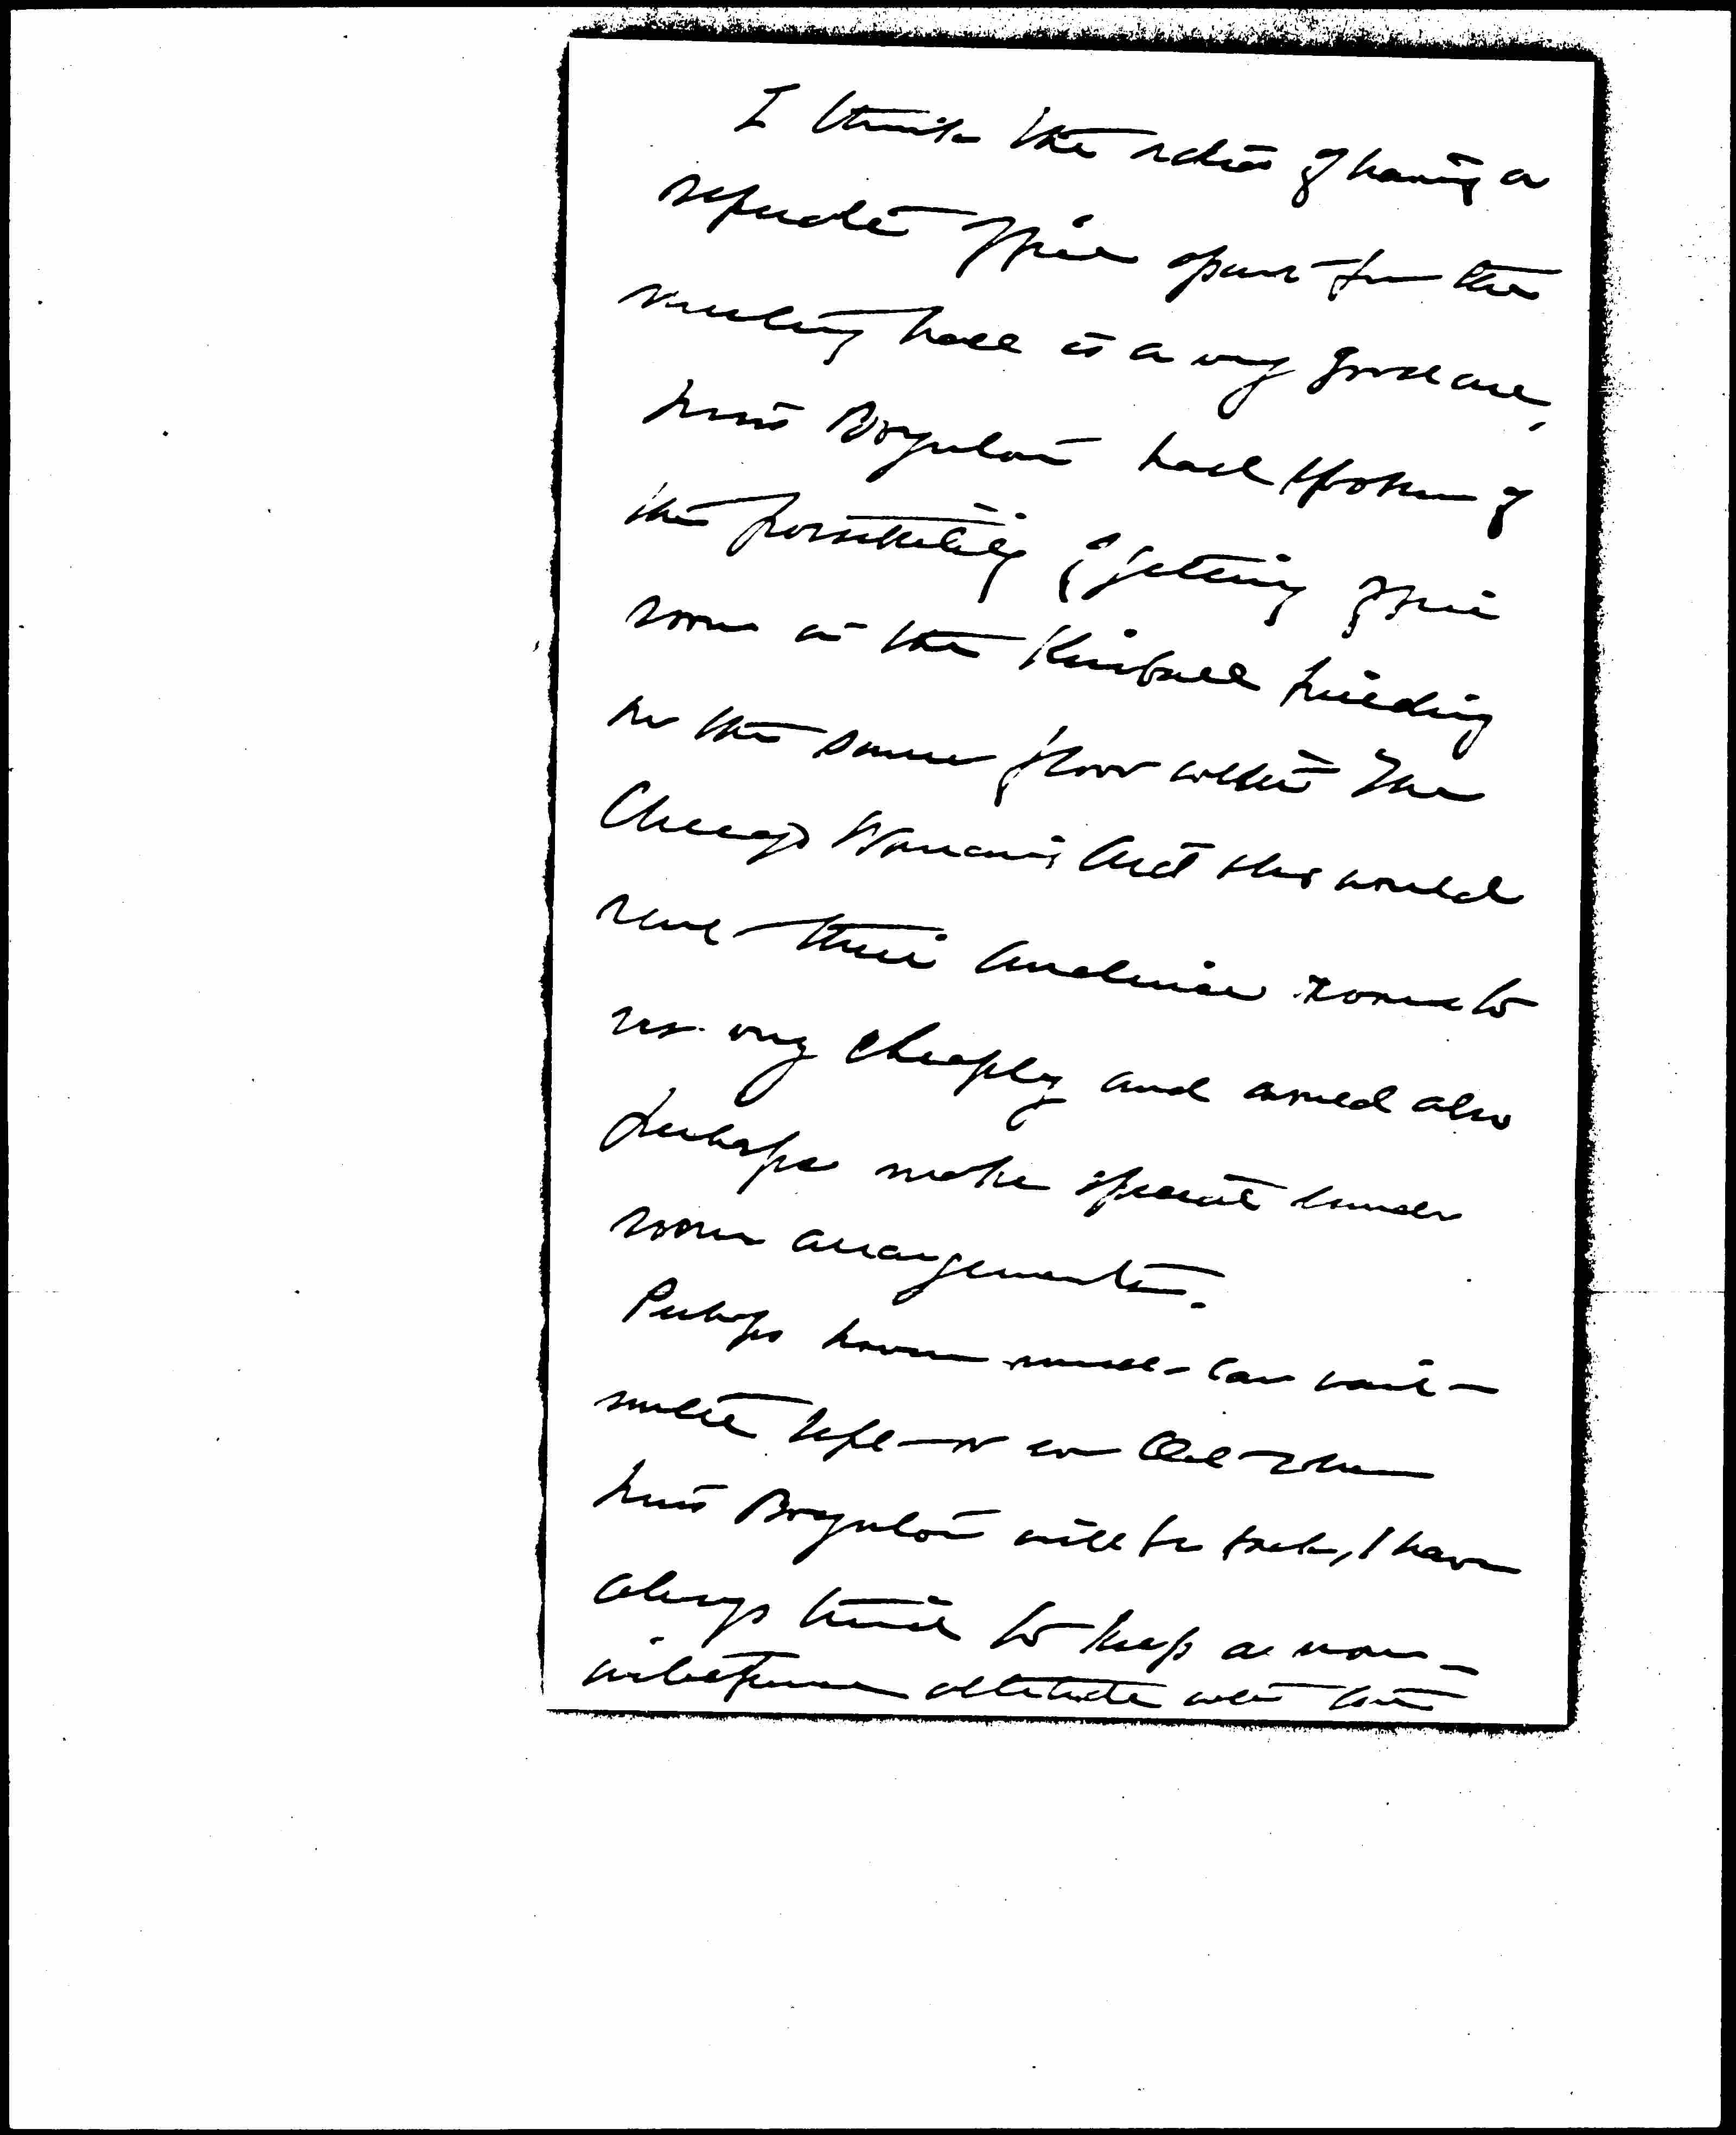 I think the idea of having a
separate office apart from the
meeting hall is a very good one,
Miss Boynton had spoken of
the possibility of getting office
room in the Kimball building
on the same floor with the
Chicago Woman's Aid who would
rent their audience room to
us very cheaply and would also
perhaps make special lunch
room arrangements.
Perhaps however much can wait
until Sept or Oct when
Miss Boynton will be back, I have
always tried to keep a non-
interference attitude with